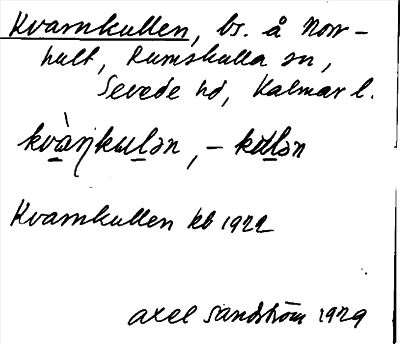 Kvarnkullen, bs. å Norr-
hult, Rumskulla sn,
Sevede hd, Kalmar l.
kvàŋkulən, - kulən
Kvarnkullen kb 1922
Axel Sandström 1929